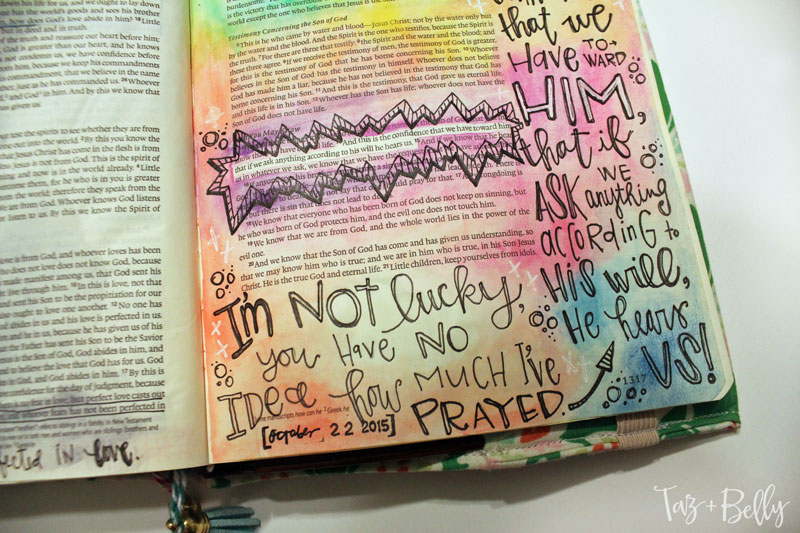 life for us, and we ought to lay down
the world's goods and sees his brother
how does God's love abide in him? 18 Little
but in deed and in truth.
the truth and reassure our heart before him;
God is greater than our heart, and he knows
not condemn us, we have confidence before
him, because we keep his commandments
commandment, that we believe in the name
other, just as he has commanded us. 24 Whoever
and God in him. And by this we know that
has given us.
test the spirits to see whether they are from
world. 2 By this you know the
Jesus Christ has come in the flesh is from
from God. This is the spirit of
and now is in the world already. 4 Little
them, for he who is in you is greater
from the world; therefore they speak from the
are from God. Whoever knows God listens
listen to us. By this we know the Spirit of
is from God, and whoever loves has been
does not love does not know God, because
made manifest among us, that God sent his
him. 10 In this is love, not that
his Son to be the propitiation for our
ought to love one another. 12 No one has
abides in us and his love is perfected in us.
and he in us, because he has given us of his
Father has sent his Son to be the Savior
is the Son of God, God abides in him, and
and to believe the love that God has for us. God
in God, and God abides in him. 17 By this is
confidence for the day of judgment, because
fear in love, but perfect love casts out
fears has not been perfected in
in love.
the victory that has overcome the world
world except the one who believes that Jesus is the Son
Testimony Concerning the Son of God
6 This is he who came by water and blood—Jesus Christ; not by the water only but
by the water and the blood. And the Spirit is the one who testifies, because the Spirit is
the truth. 7 For there are three that testify: 8 the Spirit and the water and the blood; and
these three agree. 9 If we receive the testimony of men, the testimony of God is greater,
for this is the testimony of God that he has borne concerning his Son. 10 Whoever
believes in the Son of God has the testimony in himself. Whoever does not believe
God has made him a liar, because he has not believed in the testimony that God has
borne concerning his Son. 11 And this is the testimony, that God gave us eternal life,
and this life is in his Son. 12 Whoever has the Son has life; whoever does not have the
Son of God does not have life.
You May Know
life. 14 And this is the confidence that we have toward him,
that if we ask anything according to his will he hears us. 15 And if we know that he hears
us in whatever we ask, we know that we have the
lead to death. There is
pray for that. 17 All wrongdoing is
but there is sin that does not lead to death.
18 We know that everyone who has been born of God does not keep on sinning, but
he who was born of God protects him, and the evil one does not touch him.
19 We know that we are from God, and the whole world lies in the power of the
evil one.
20 And we know that the Son of God has come and has given us understanding, so
that we may know him who is true; and we are in him who is true, in his Son Jesus
Christ. He is the true God and eternal life. 21 Little children, keep yourselves from idols.
I'm NOT lucky,
you HAVE NO
IDEA how MUCH I'VE
PRAYED.
manuscripts 2 Greek he
[October 22 2015]
that we
HAVE TO→WARD
HIM,
that if
WE
ASK anything
ACCORDING to
HIS will,
He hears
US!
1317
Taz + Belly